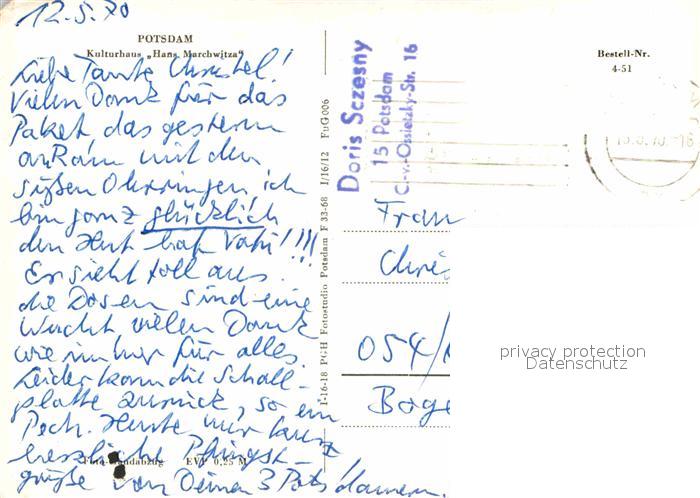 12.5.70
POTSDAM
Kulturhaus „Hans Marchwitza"
Liebe Tante Christel!
Vielen Dank für das
Paket das gestern
ankam mit den
süßen Ohrringen ich
bin ganz glücklich
den Hut hat Vati!!!!
Er sieht toll aus.
die Dosen sind eine
Wucht vielen Dank
wie immer für alles.
Leider kam die Schall-
platte zurück, so ein
Pech. Heute nur kurz
herzliche Pfingst-
Foto-Handabzug EVP 0,25 M
grüße von Deinen 3 Potsdamern.
I-16-18 PGH Fotostudio Potsdam F 33-68 I/16/12 FuG006
Doris Sczesny
15 Potsdam
C.-v.-Ossietzky-Str. 16
Bestell-Nr.
4-51
Frau
Chris
054/
Boge
privacy protection
Datenschutz